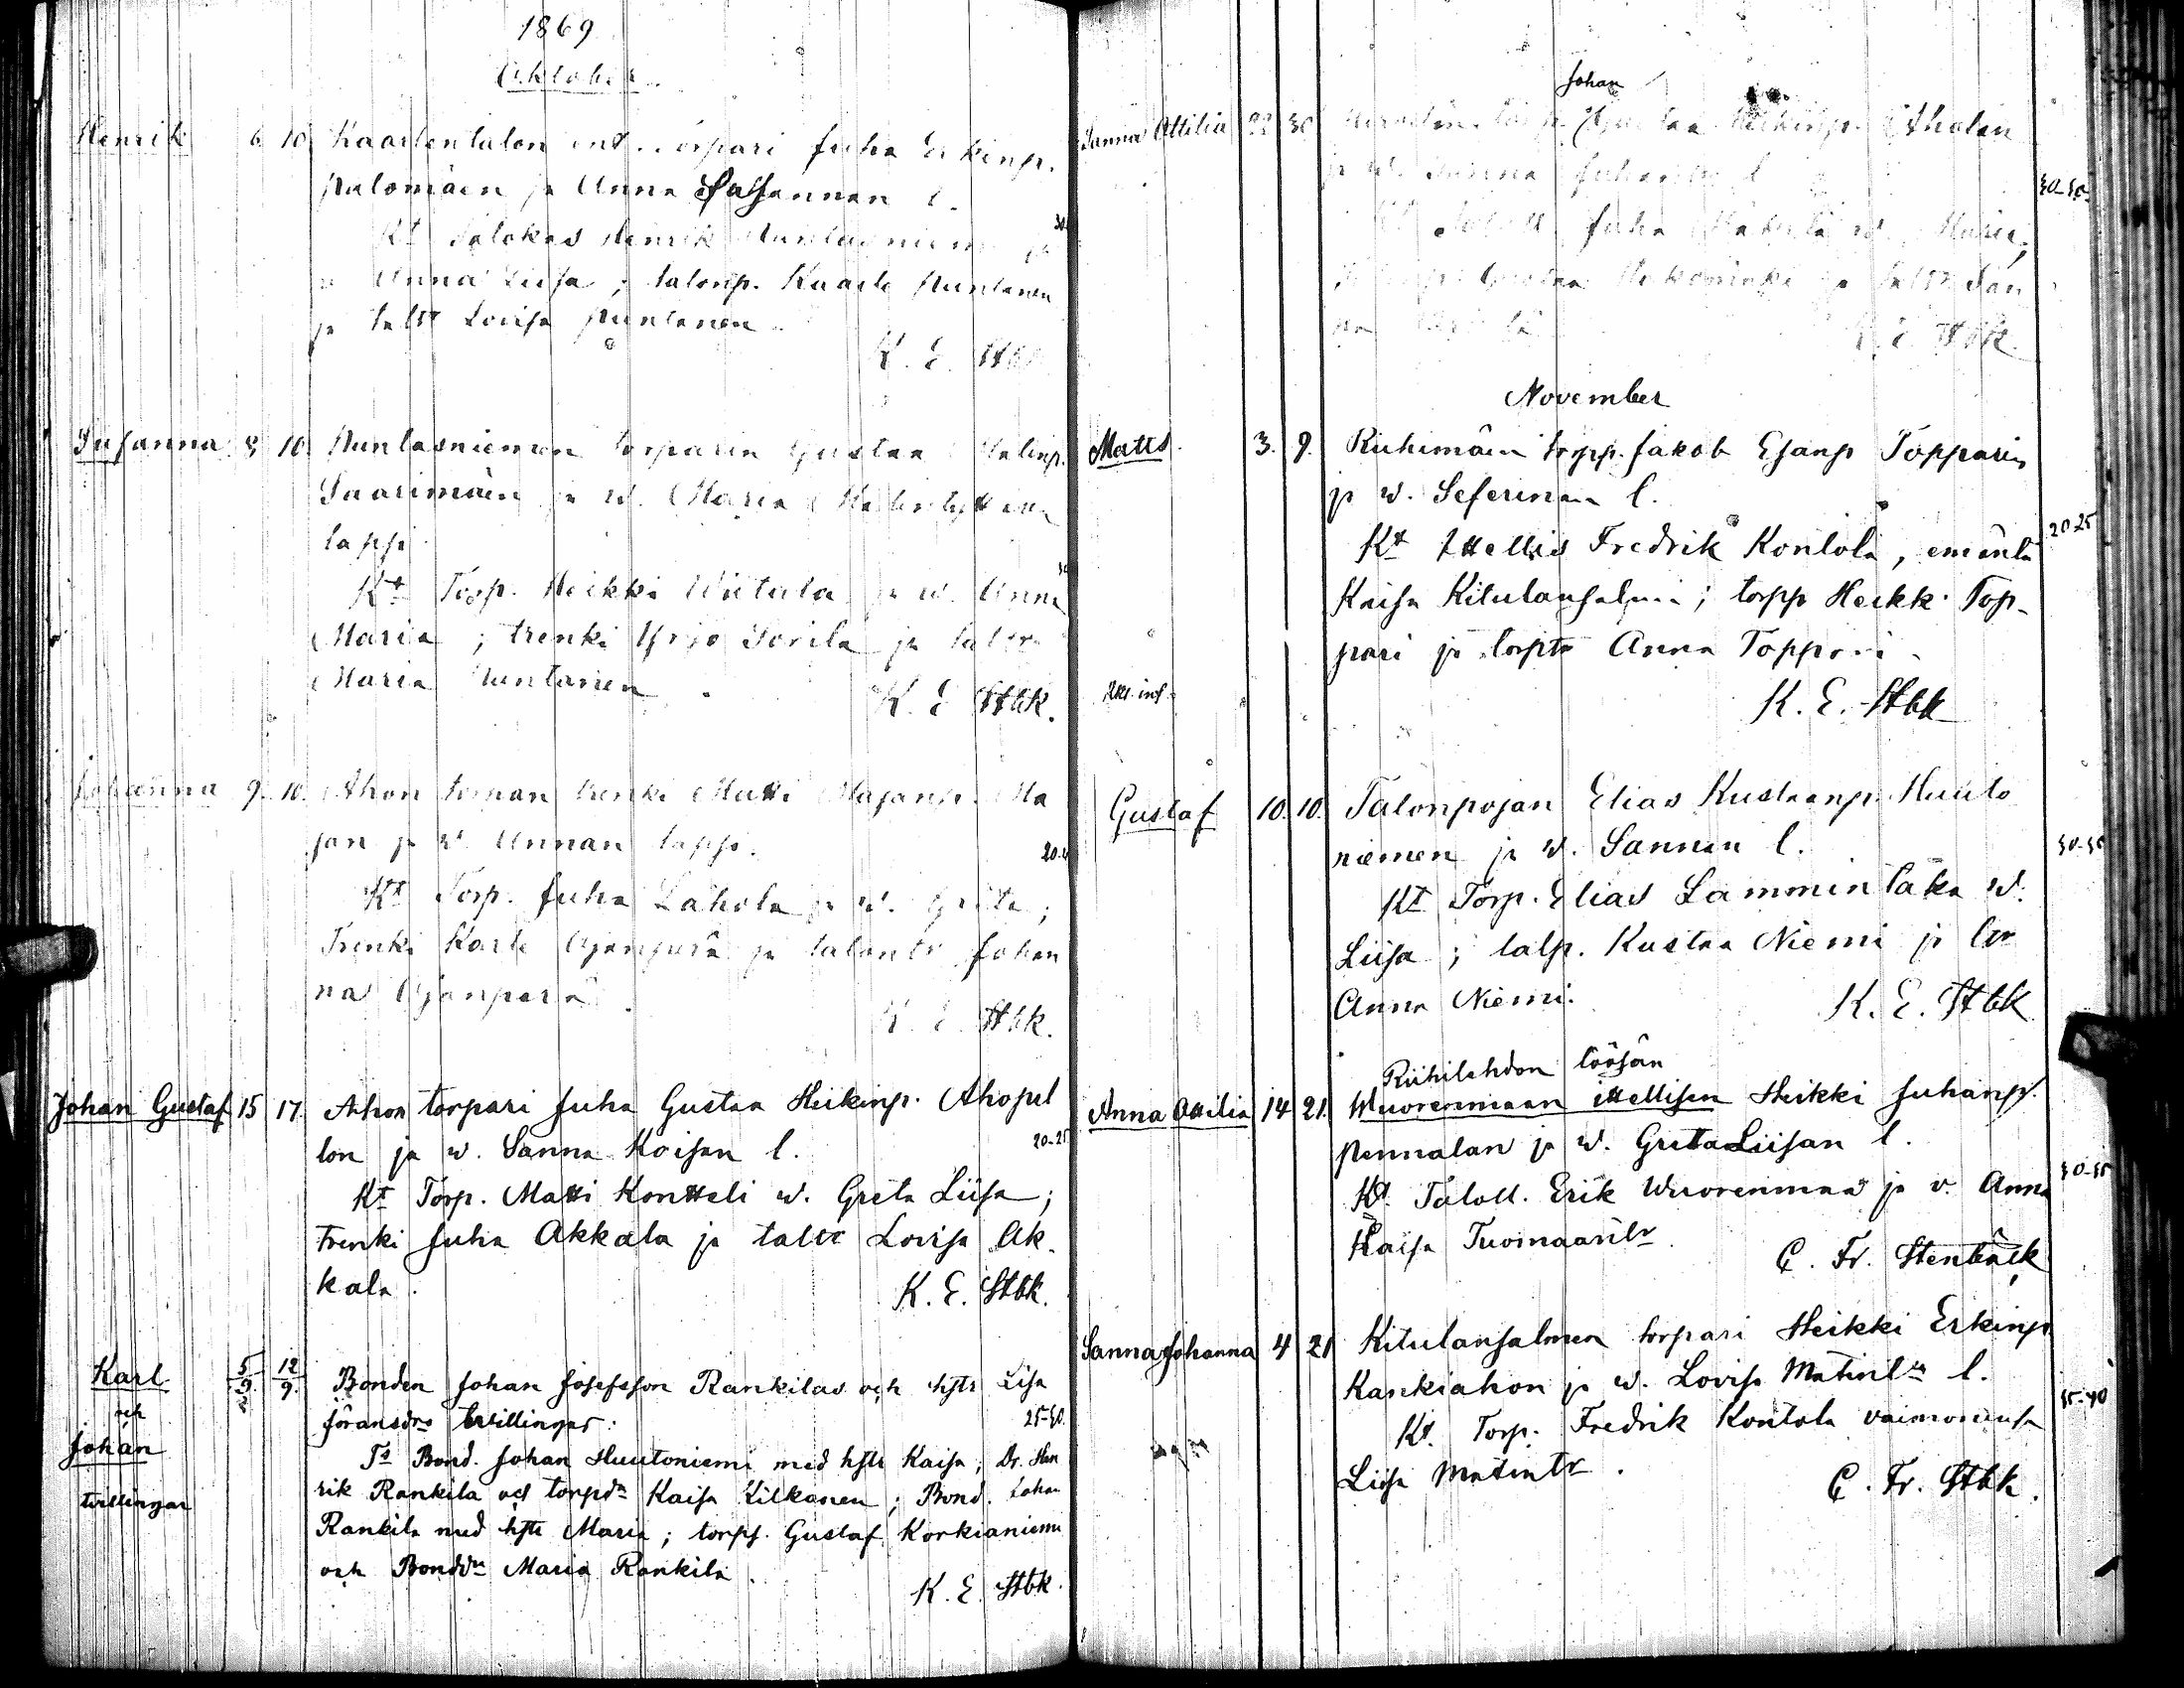 1869
Oktober
Henrik 6 10 Kaarlentalon ent. torpari Juha Erkinp.
Palomäen ja Anna Susannan l.
Kt Talokas Henrik Puntasniemi ja
w Anna Liisa; talonp. Kaarle Puntanen
ja taltr Lovisa Puntanen.
K. E. Stbk
Susanna 8 10. Puntasniemen torparin Gustaa
Saarimäen ja w. Maria
lapsi
Kt Torp. Heikki Wiitala ja w. Anna
Maria; trenki Yrjö Sorila ja taltr
Maria Puntanen.
K. E. Stbk.
Johanna 9. 10. Ahon toman trenki Matti Majanp. Ma
jan ja w. Annan lapsi.
20-
Kt Torp. Juha Lahola ja w. Greta;
Trenki Karle Ojanperä ja talontr Johan
na Ojanperä.
K. E. Stbk.
Johan Gustaf 15 17. Ahon torpari Juha Gustaa Heikinp. Ahopel
lon ja w. Sanna Koisan l.
20-25
Kt Torp. Matti Kontteli w. Greta Liisa;
trenki Juha Akkala ja taltr Lovisa Ak-
kala.
K. E. Stbk.
Karl 5/9. 12/9. Bonden Johan Josefsson Rankilas och hstr Lisa
och
Jöransdr twillingar:
25-30.
Johan
Ts Bond. Johan Huutoniemi med hstr Kaisa; Dr. Hen
twillingar
rik Rankila och torpdr Kaisa Kilkanen; Bond. Johan
Rankila med hstr Maria; torps. Gustaf Korkianiemi
och Bonddr Maria Rankila.
K. E. Stbk.
Johan
Sanna Attilia 22 30 Gustaa Heikinp. Aholan
ja w. Sanna Juhantr l
30-35
Juha Mäkelä w. Maria;
Gustaa ja taltr San
na
K. E. Stbk.
November
Matts. 3. 9. Riihimäen torpp. Jakob Esanp Topparin
ja w. Seferinan l.
20-25
Kt Ittellis Fredrik Kontola, emäntä
Kaisa Kitulansalmi; torpp Heikki Top-
pari ja torptr Anna Toppari.
K. E. Stbk
Gustaf 10. 10. Talonpojan Elias Kustaanp. Huuto
niemen ja w. Sannan l.
30-35
Kt Torp. Elias Lammintaka w.
Liisa; talp. Kustaa Niemi ja tr
Anna Niemi.
K. E. Stbk
Riihilahdon töösän
Anna Attilia 14 21. Wuorenmaan ittellisen Heikki Juhanp.
Pennalan ja w. Greta Liisan l.
30-35
Kt. Taloll. Erik Wuorenmaa ja v. Anna
Kaisa Tuomaantr.
C. Fr. Stenbäck
Sanna Johanna 4 21 Kitulansalmen torpari Heikki Erkinp
Kankiahon ja w. Lovisa Matintr l.
35-40
Kt. Torp. Fredrik Kontola vaimonensa
Liisa Matintr.
C. Fr. Stbk.